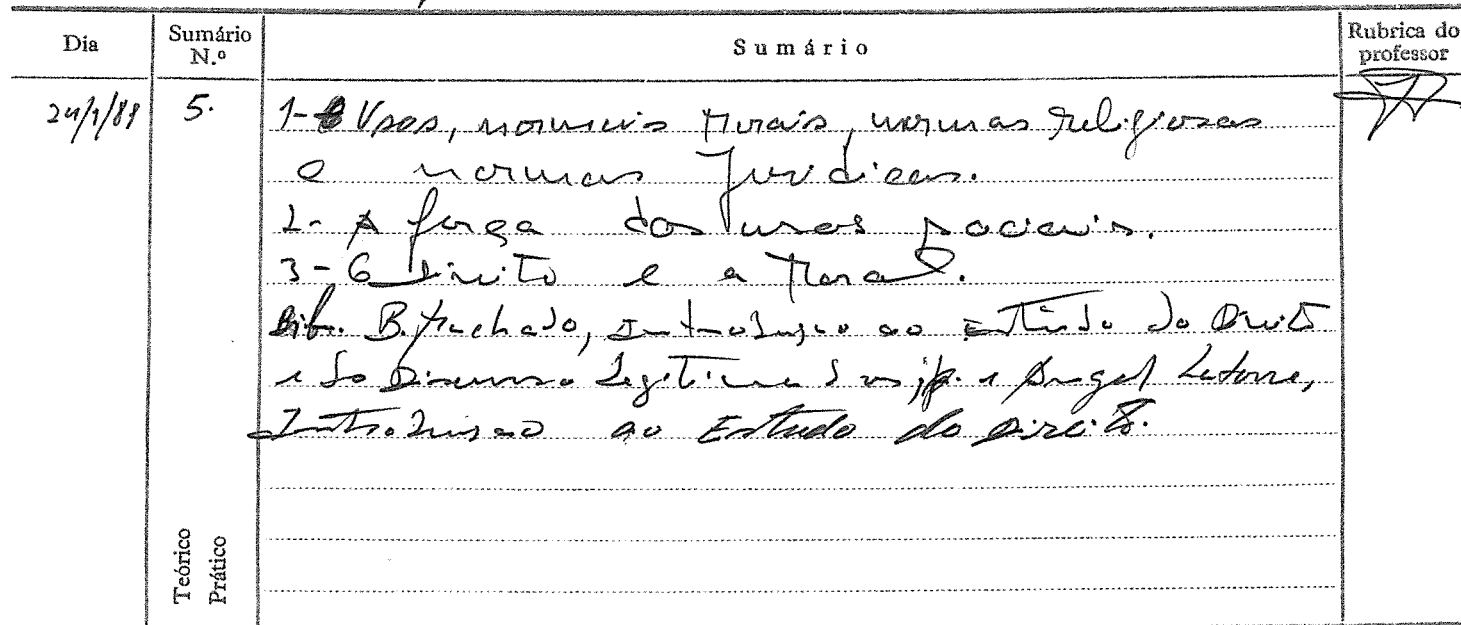 Dia
Sumário N.º
Sumário
Rubrica do professor
24/1/89
5.
1- Usos, normas morais, normas religiosas
e normas jurídicas.
2- A força dos usos sociais.
3- O Direito e a Moral.
Bib. B. Machado, Introdução ao Estudo do Direito
e do Discurso Legitimador e Angel Latorre,
Introdução ao Estudo do Direito.
Teórico
Prático